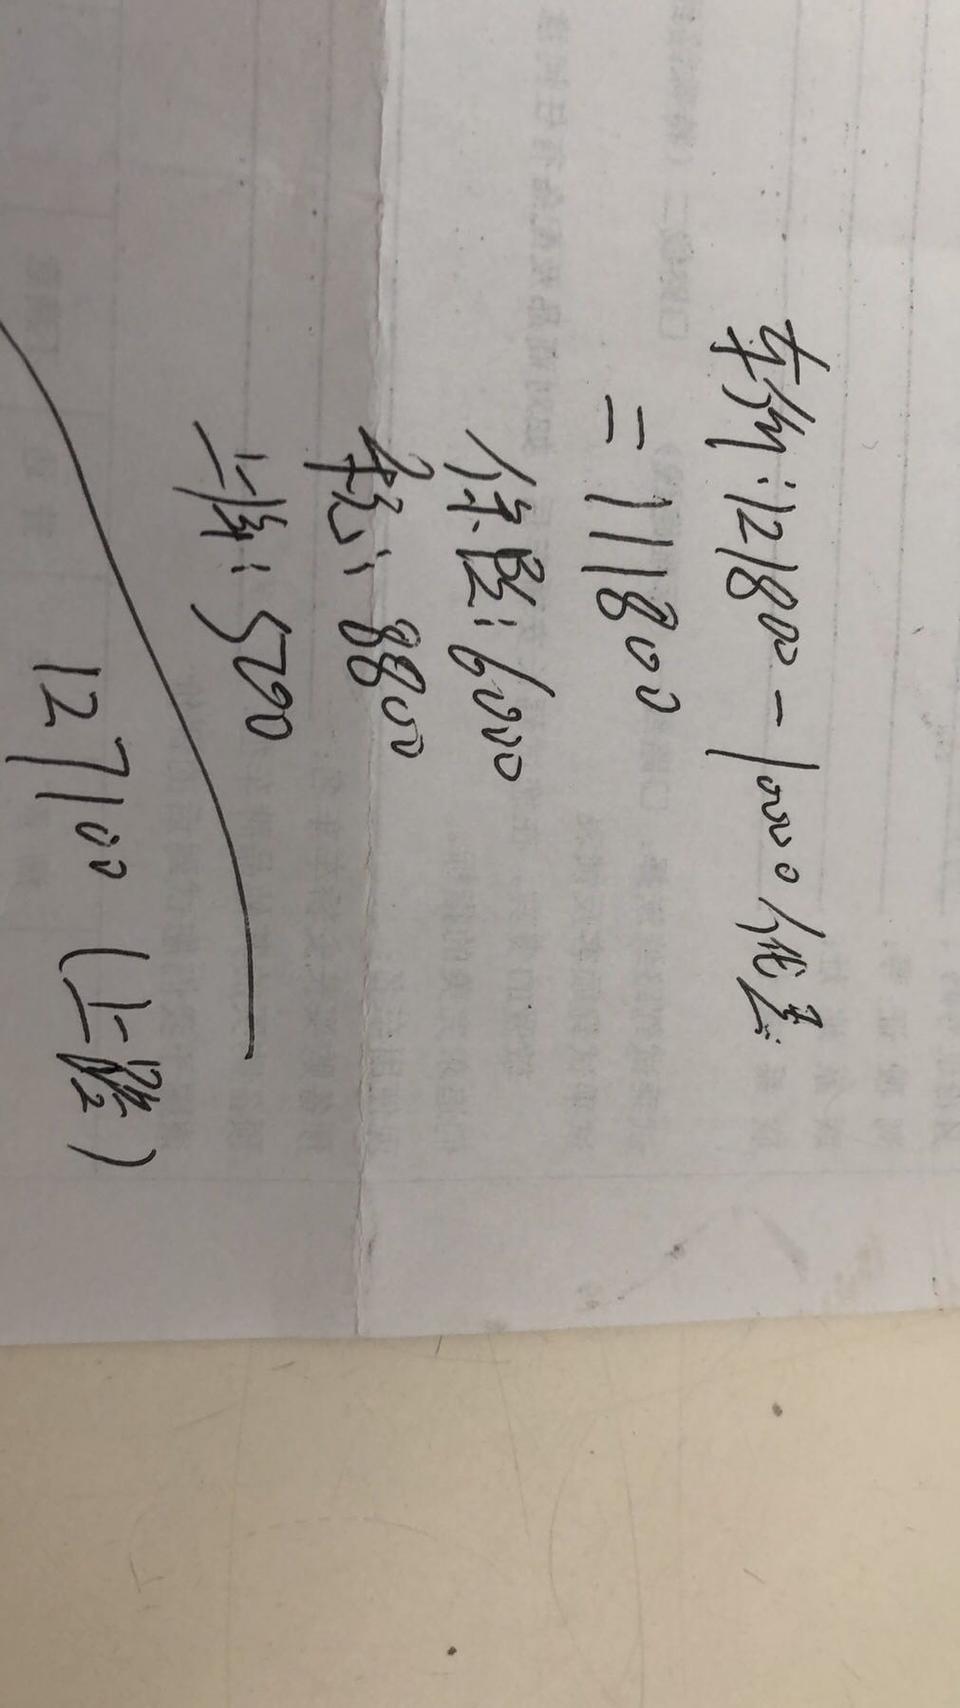 车价:121800-10000优惠
=111800
保险:6000
税:8800
上牌:500
127100(上路)